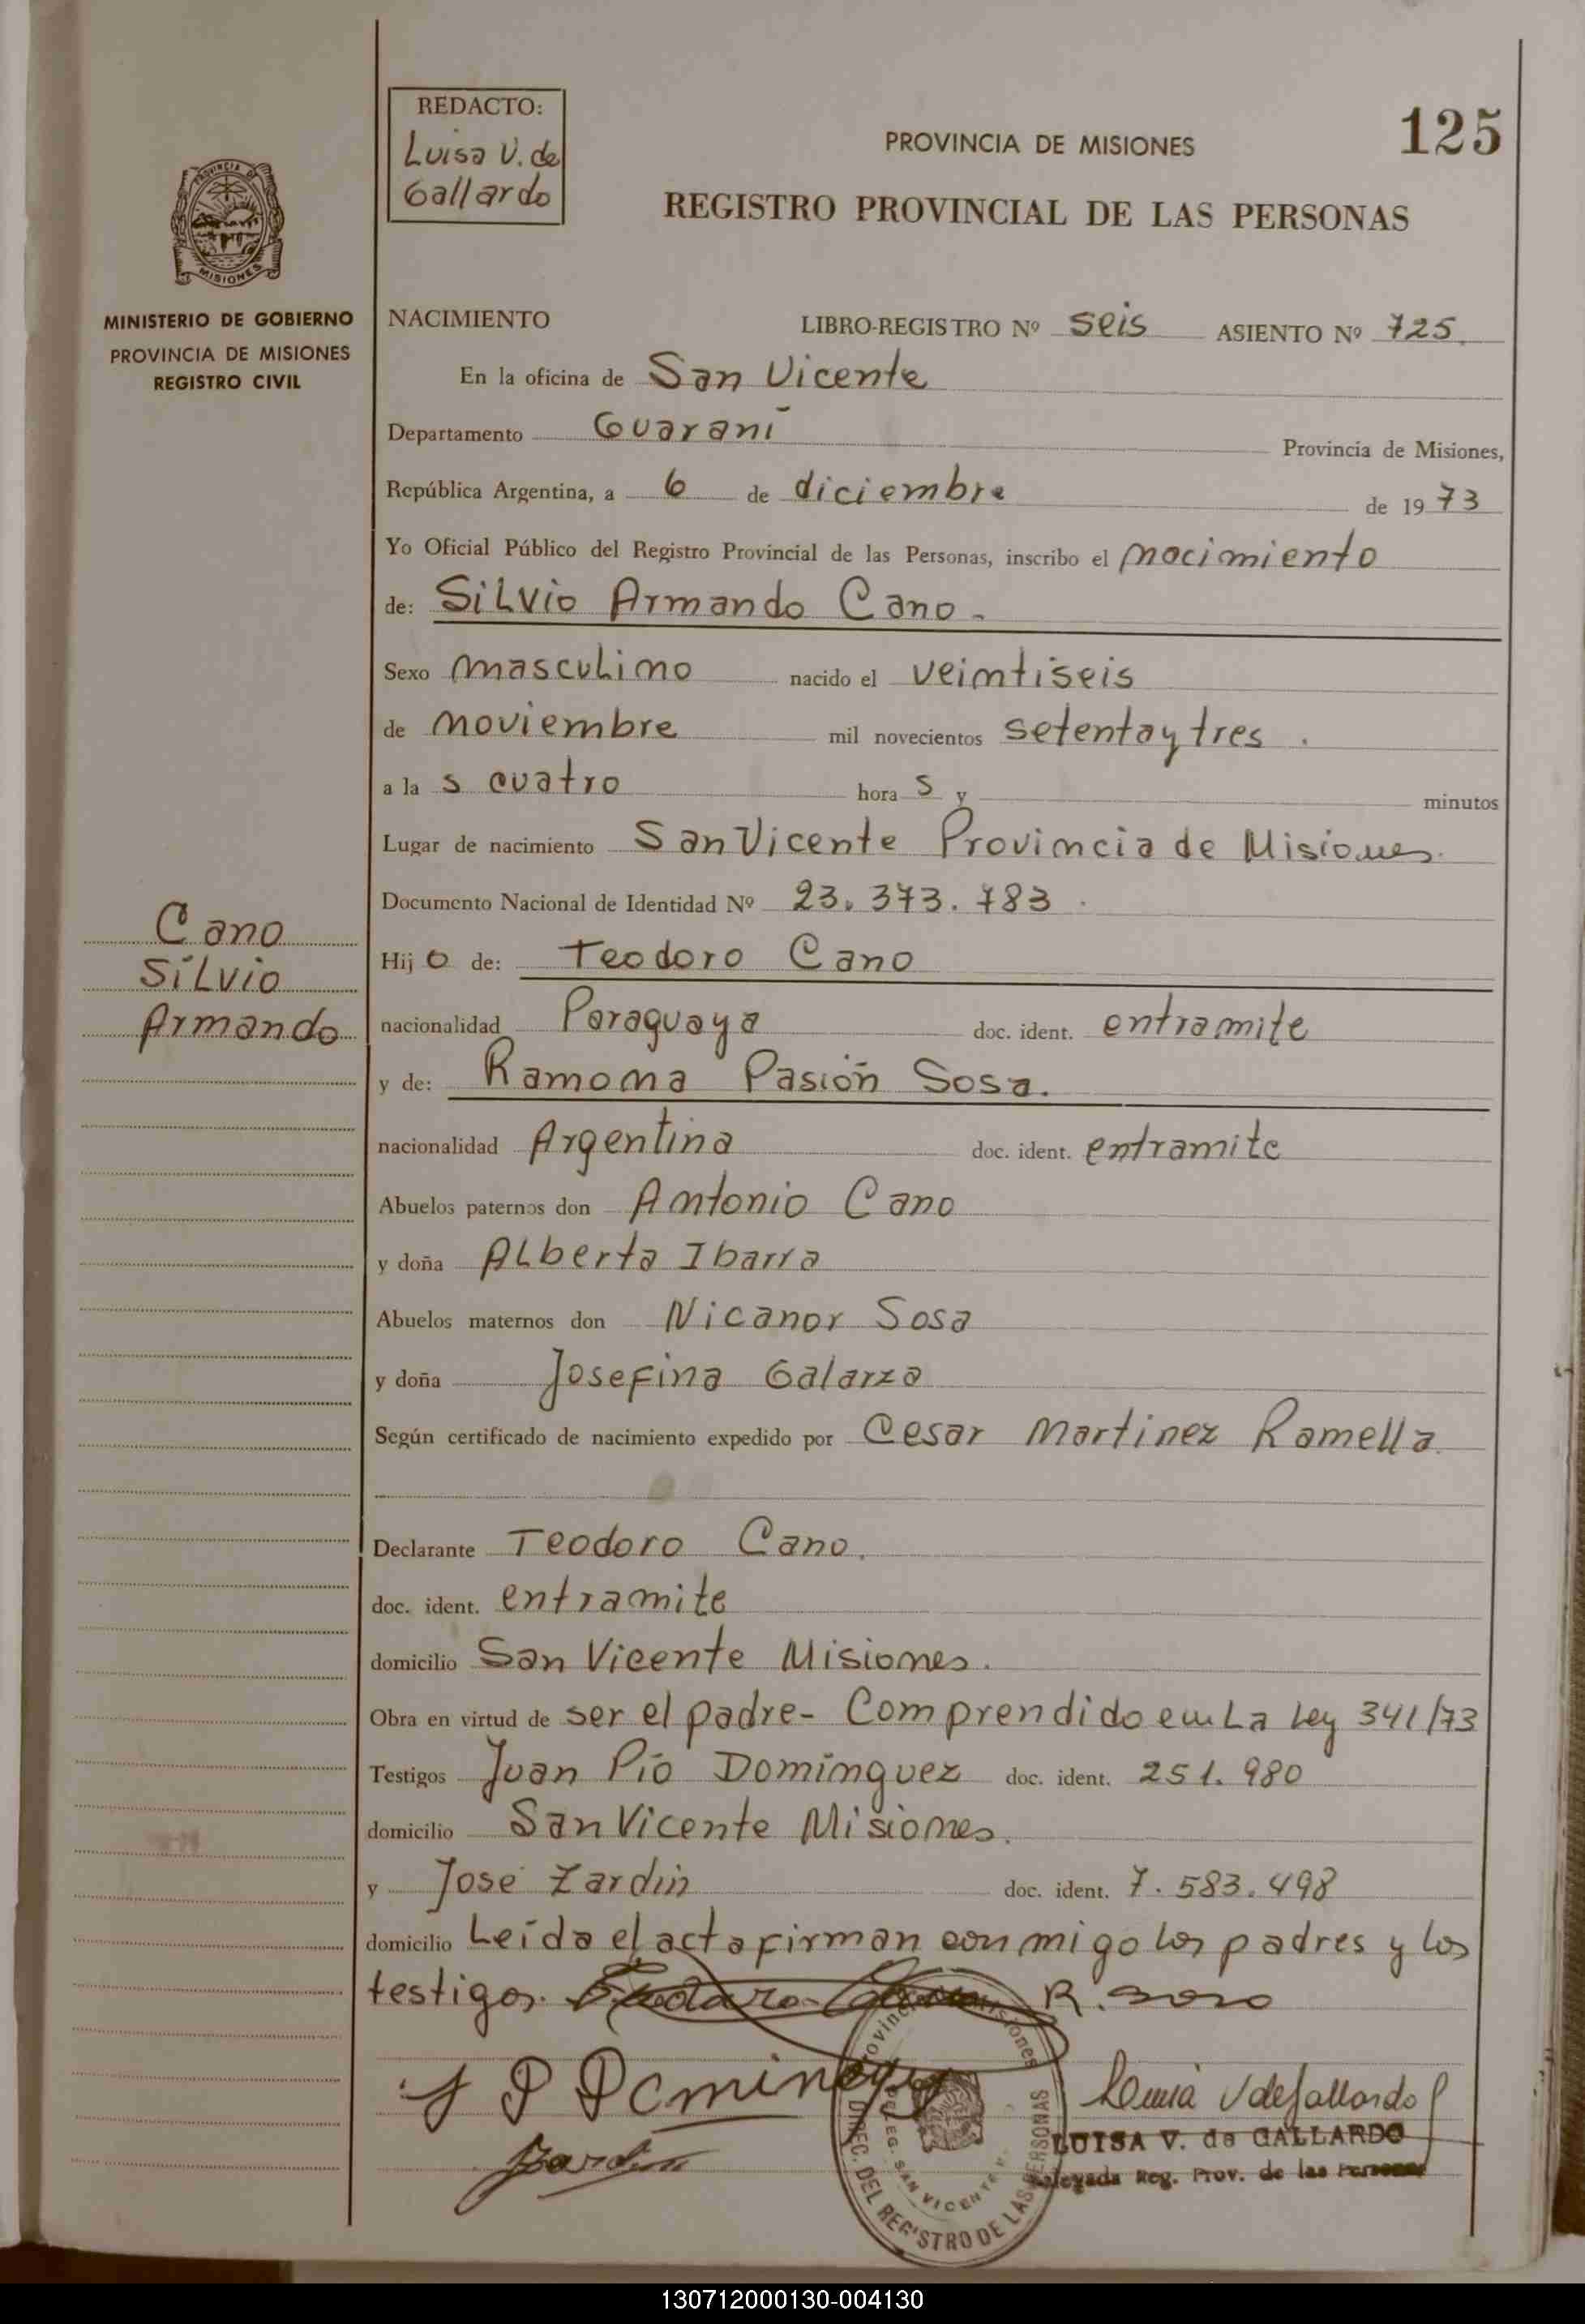 REDACTO:
Luisa V. de
Gallardo
125
PROVINCIA DE MISIONES
REGISTRO PROVINCIAL DE LAS PERSONAS
PROVINCIA
MISIONES
MINISTERIO DE GOBIERNO
PROVINCIA DE MISIONES
REGISTRO CIVIL
NACIMIENTO LIBRO-REGISTRO Nº seis ASIENTO Nº 725.
En la oficina de San Vicente
Departamento Guaraní Provincia de Misiones,
República Argentina, a 6 de diciembre de 19 73
Yo Oficial Público del Registro Provincial de las Personas, inscribo el nacimiento
de: Silvio Armando Cano -
Sexo masculino nacido el veintiseis
de noviembre mil novecientos setenta y tres .
a la s cuatro hora s y minutos
Lugar de nacimiento San Vicente Provincia de Misiones.
Documento Nacional de Identidad Nº 23.373.783.
Hij o de: Teodoro Cano
nacionalidad Paraguaya doc. ident. entramite
y de: Ramona Pasión Sosa.
nacionalidad Argentina doc. ident. entramite
Abuelos paternos don Antonio Cano
y doña Alberta Ibarra
Abuelos maternos don Nicanor Sosa
y doña Josefina Galarza
Según certificado de nacimiento expedido por Cesar Martinez Ramella.
Declarante Teodoro Cano.
doc. ident. entramite
domicilio San Vicente Misiones.
Obra en virtud de ser el padre- Comprendido en La Ley 341/73
Testigos Juan Pío Domínguez doc. ident. 251.980
domicilio San Vicente Misiones.
y José Zardin doc. ident. 7.583.498
domicilio Leída el acta firman conmigo los padres y los
testigos. Teodoro Cano R. Soso
J P Dominguez
Zardin
Luisa V de Gallardo
LUISA V. de GALLARDO
Delegada Reg. Prov. de las Personas
Provincia de Misiones
DIREC. DEL REGISTRO DE LAS PERSONAS
DELEG. SAN VICENTE
Cano
Silvio
Armando
130712000130-004130